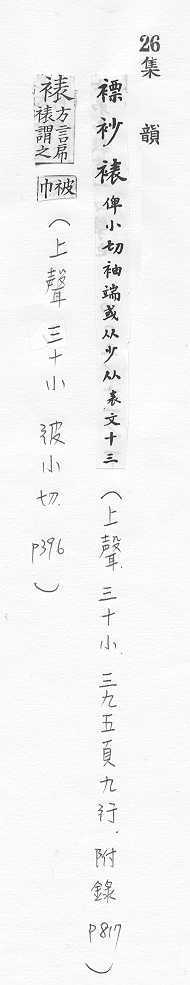 26集 韻
褾 𧘡 裱 俾小切袖端或从少从表文十三(上聲.三十小.三九五頁九行.附錄 p817)
裱 方言帍裱謂之被巾(上聲三十小 被小切.p396)